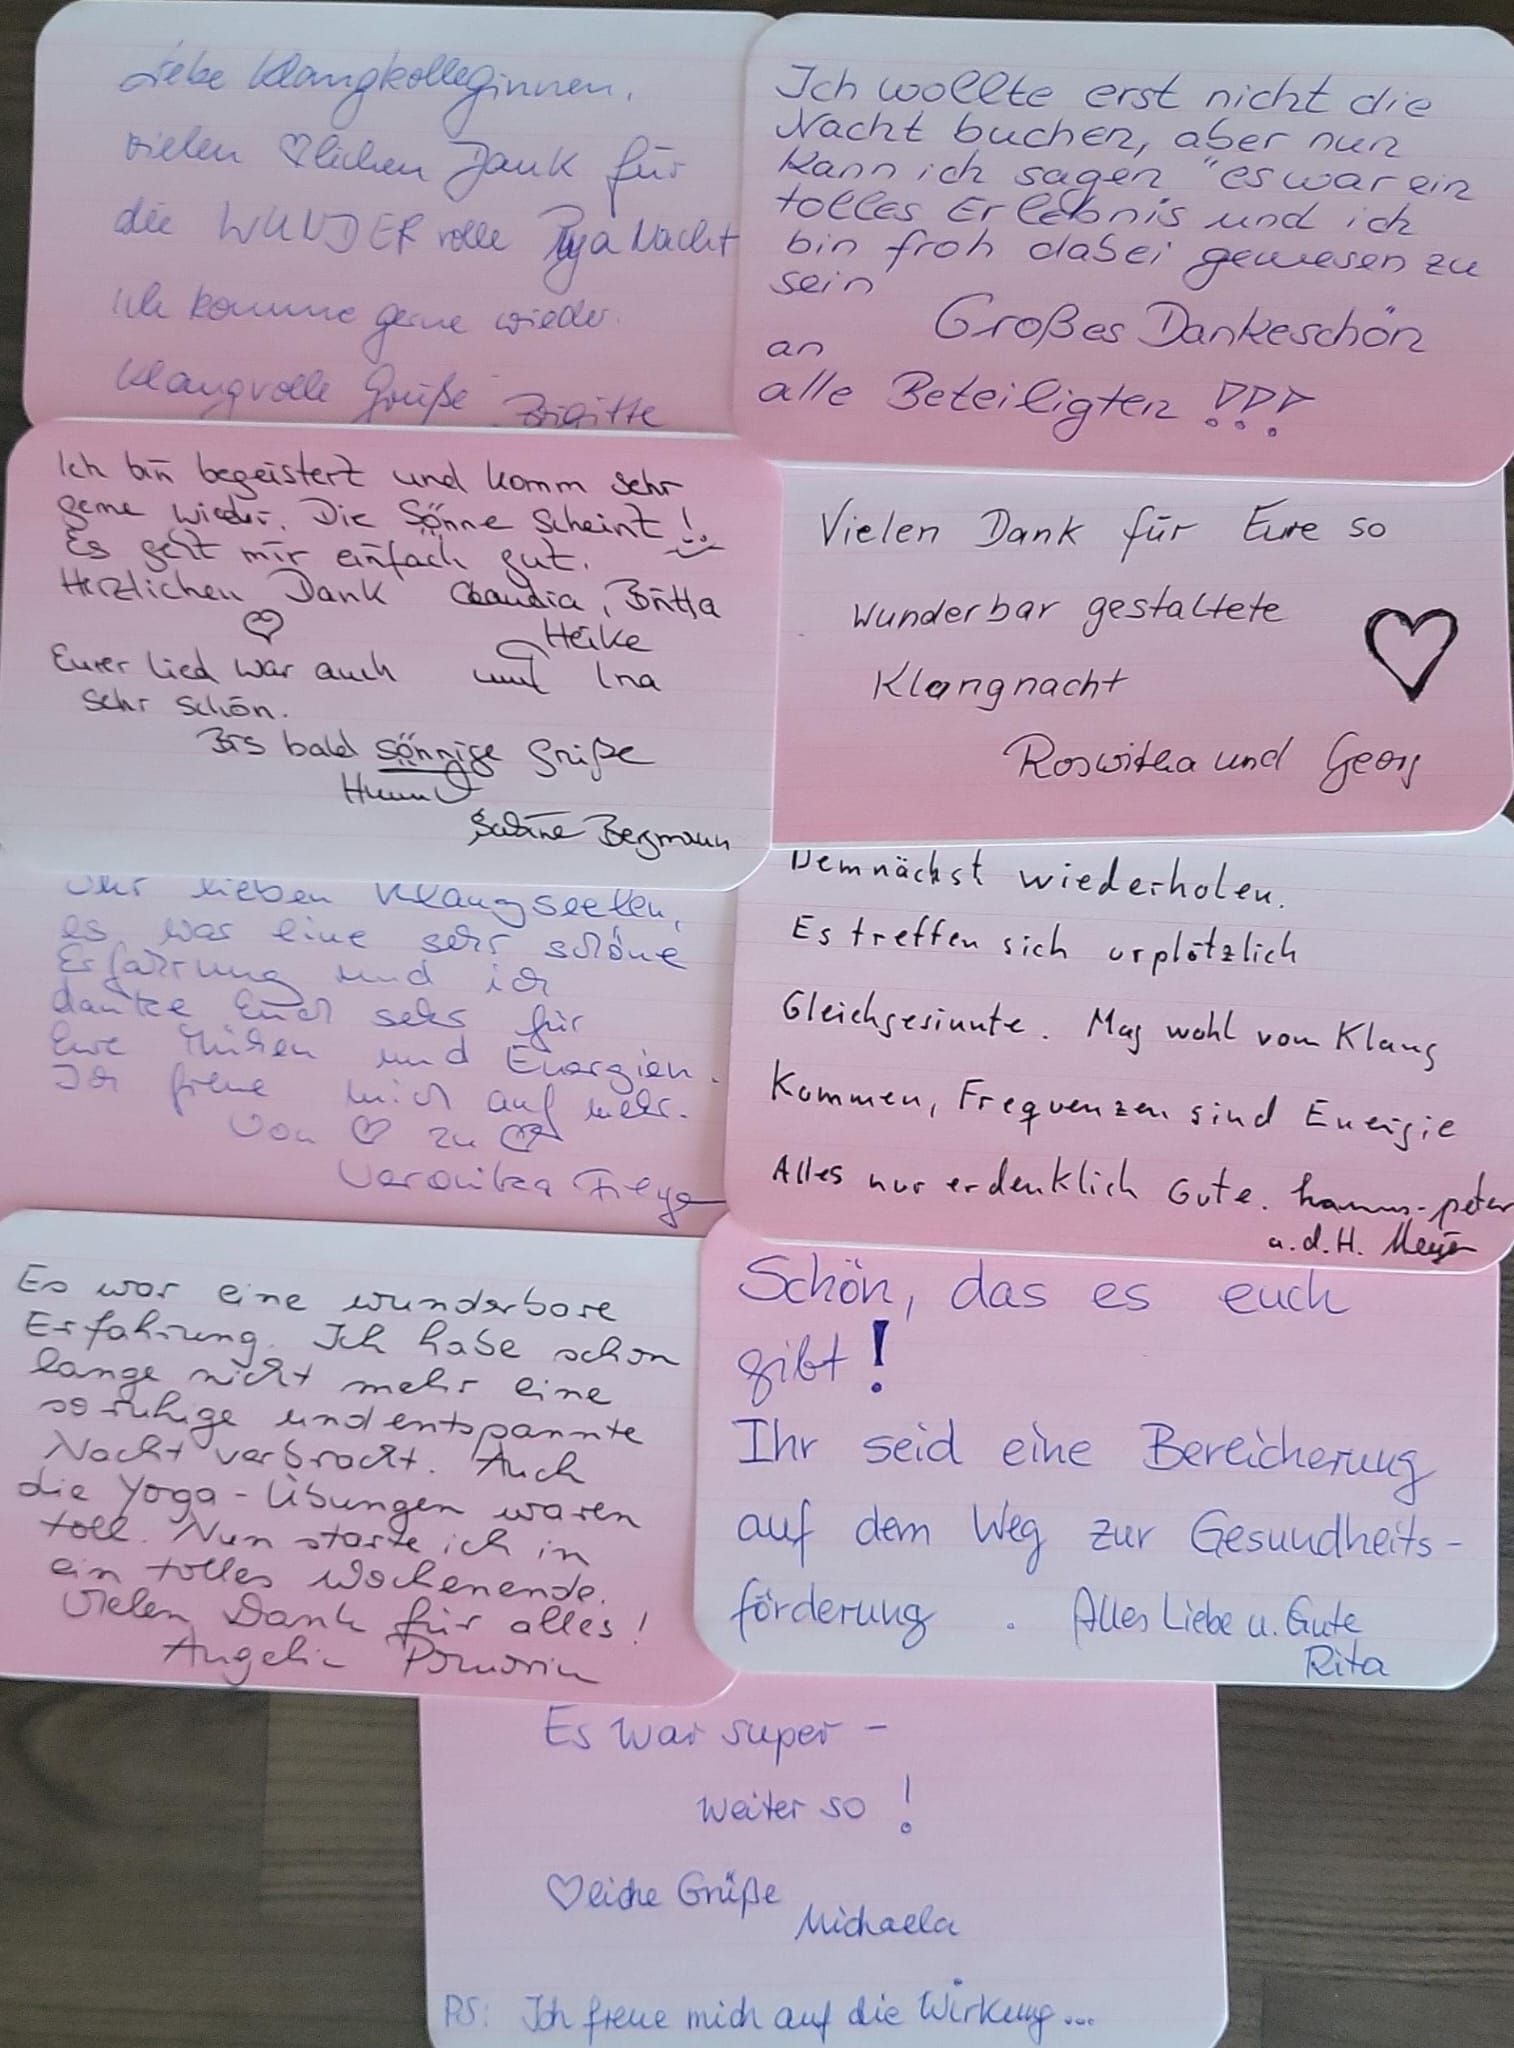 Liebe Klangkolleginnen,
vielen ♡lichen Dank für
die WUNDERvolle Nacht
Ich komme gerne wieder.
Klangvolle Grüße Brigitte
Ich wollte erst nicht die
Nacht buchen, aber nun
kann ich sagen "es war ein
tolles Erlebnis und ich
bin froh dabei gewesen zu
sein
Großes Dankeschön
an
alle Beteiligten !!!
Ich bin begeistert und komm sehr
gerne wieder. Die Sönne scheint!
Es geht mir einfach gut.
Herzlichen Dank Claudia, Britta
♡ Heike
Eurer Lied war auch und Ina
sehr schön.
Bis bald sönnige Grüße
Sabine Bergmann
Vielen Dank für Eure so
wunderbar gestaltete
Klangnacht ♡
Roswitha und Georg
Ihr lieben Klangseelen,
es war eine sehr schöne
Erfahrung und ich
danke Euch sehr für
Eure Mühen und Energien.
Ich freue mich auf mehr.
Von ♡ zu ♡
Veronika Freya
Demnächst wiederholen.
Es treffen sich urplötzlich
Gleichgesinnte. Mag wohl vom Klang
Kommen, Frequenzen sind Energie
Alles nur erdenklich Gute. hanns-peter
a.d.H. Meyer
Es war eine wunderbare
Erfahrung. Ich habe schon
lange nicht mehr eine
so ruhige und entspannte
Nacht verbracht. Auch
die Yoga-Übungen waren
toll. Nun starte ich in
ein tolles Wochenende.
Vielen Dank für alles!
Schön, das es euch
gibt!
Ihr seid eine Bereicherung
auf dem Weg zur Gesundheits-
förderung. Alles Liebe u. Gute
Rita
Es war super -
weiter so!
♡liche Grüße
Michaela
PS: Ich freue mich auf die Wirkung...